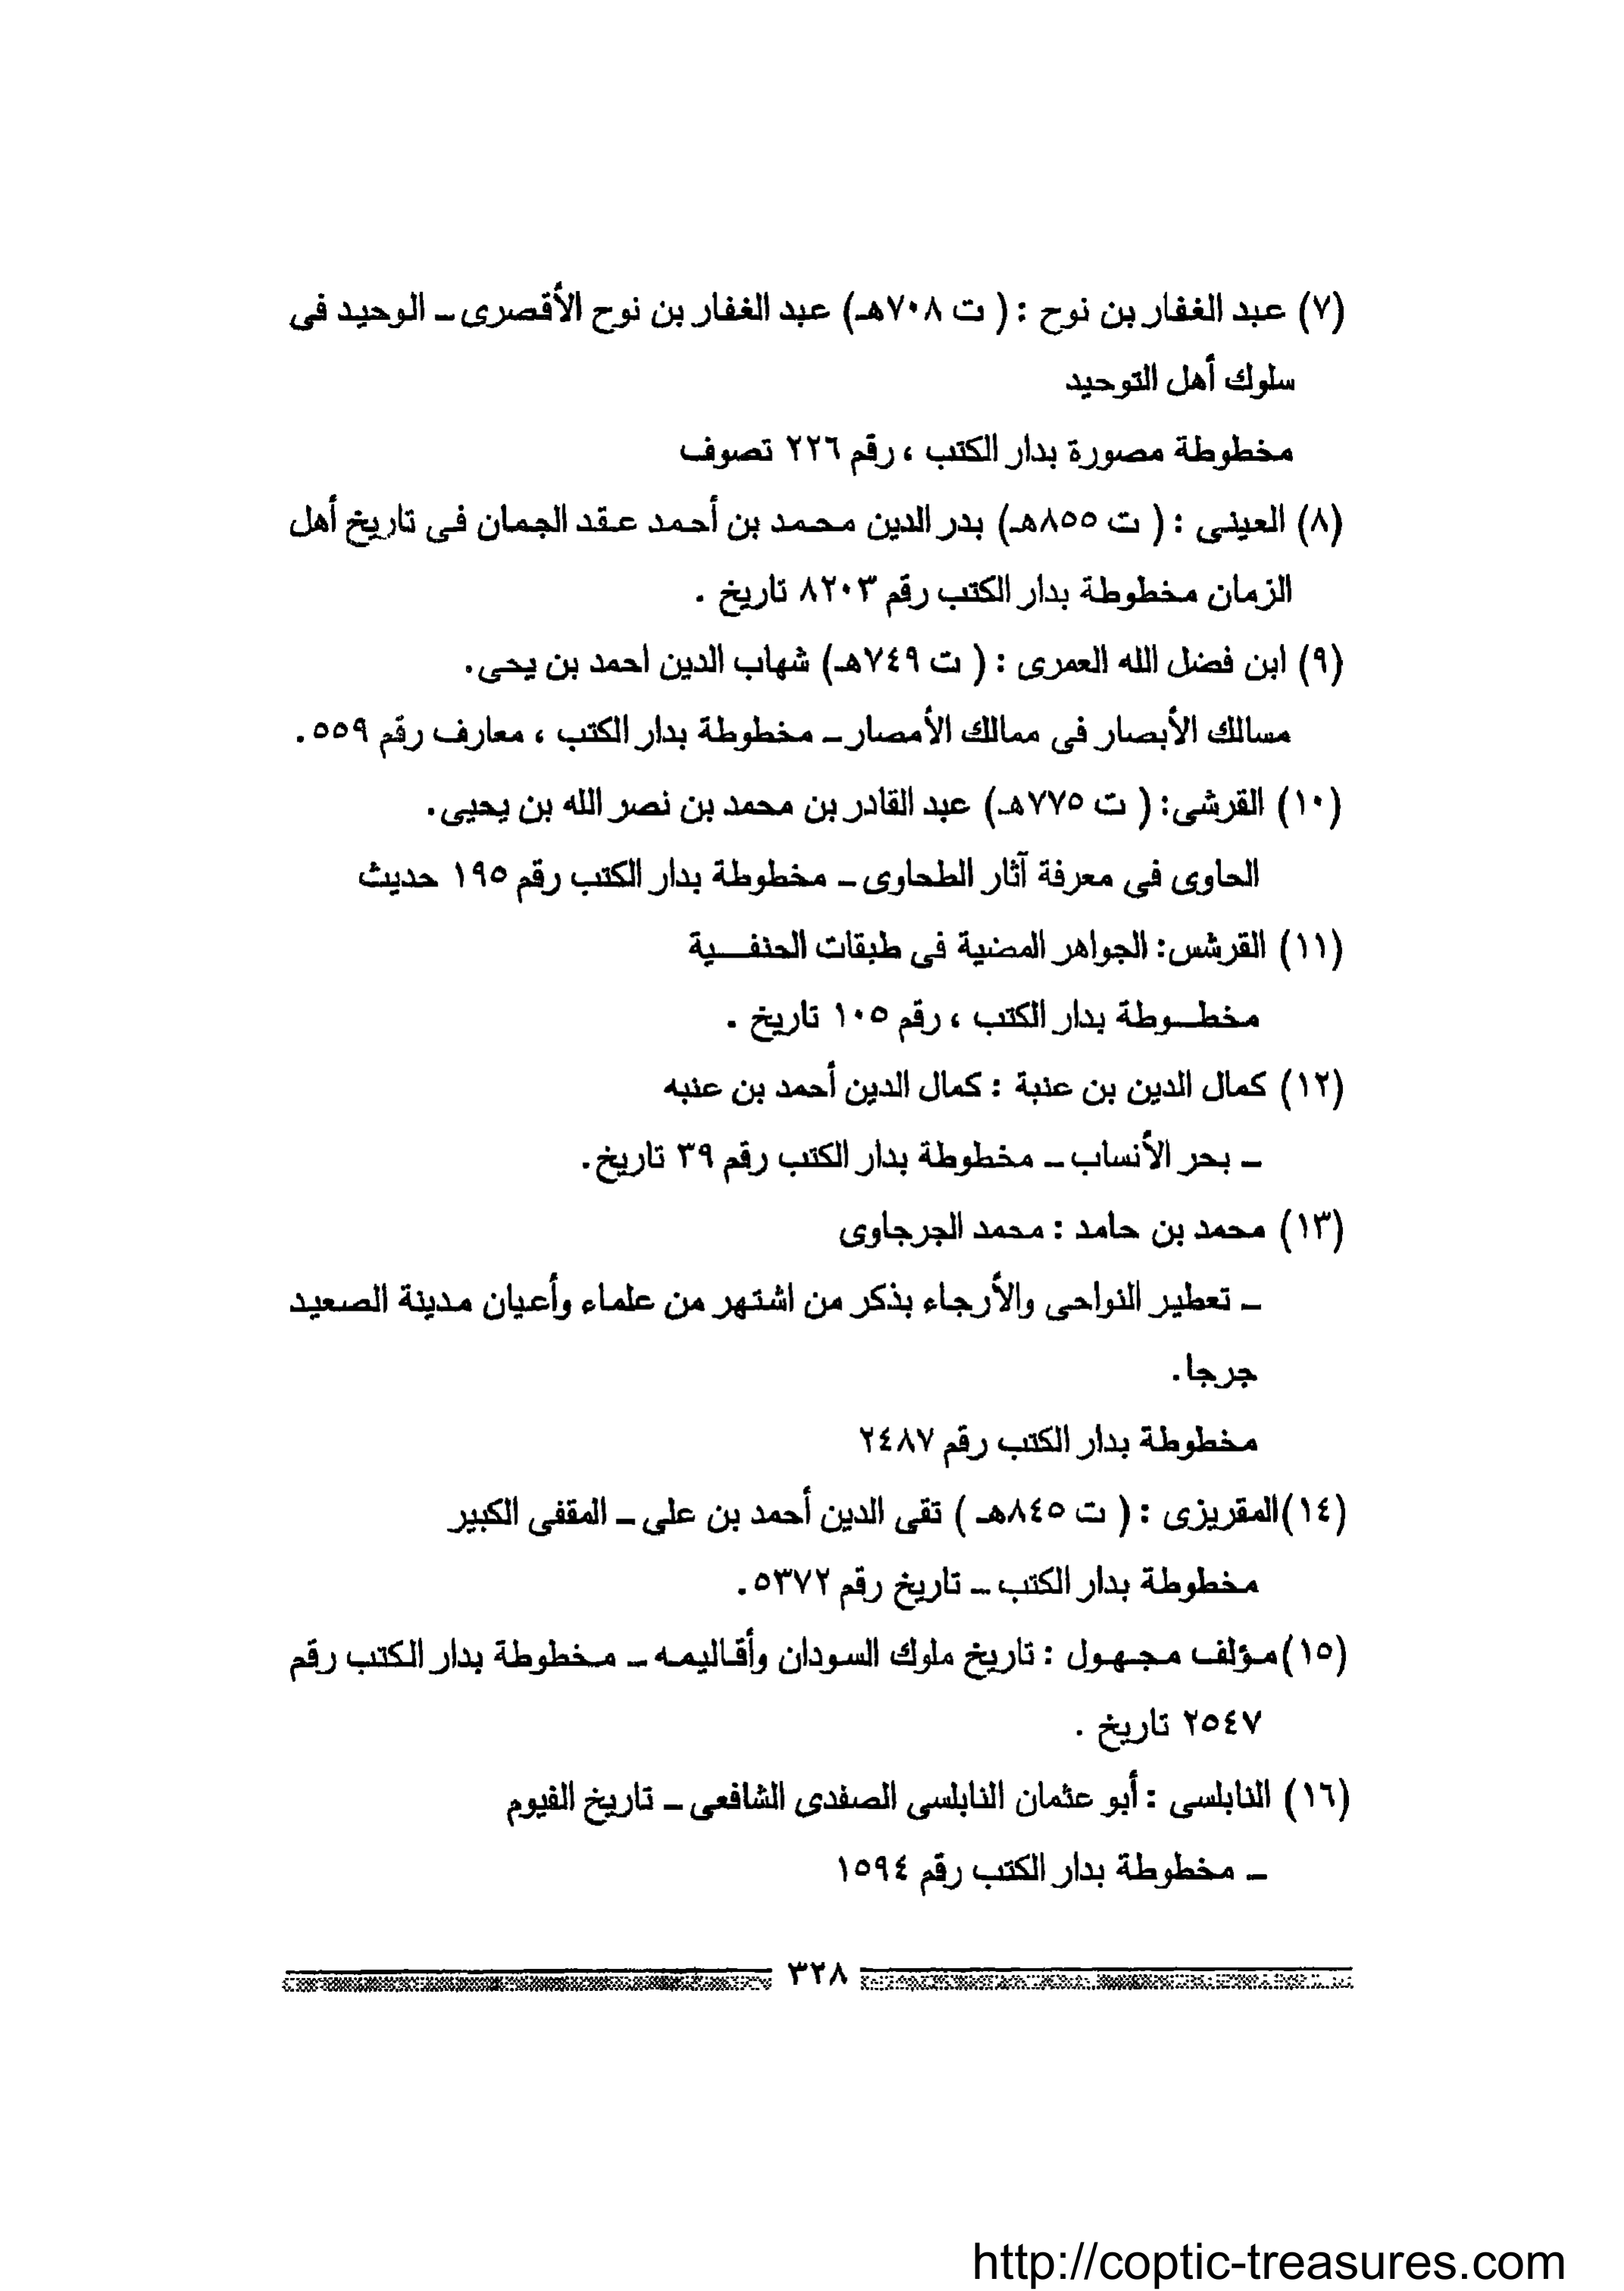 (٧) عبد الغفار بن نوح : ( ت ٧٠٨هـ) عبد الغفار بن نوح الأقصرى ـ الوحيد فى
سلوك أهل التوحيد
مخطوطة مصورة بدار الكتب ، رقم ٢٢٦ تصوف
(٨) العينى : ( ت ٨٥٥هـ) بدر الدين محمد بن أحمد عقد الجمان فى تاريخ أهل
الزمان مخطوطة بدار الكتب رقم ٨٢٠٣ تاريخ .
(٩) ابن فضل الله العمرى : ( ت ٧٤٩هـ) شهاب الدين احمد بن يحى.
مسالك الأبصار فى ممالك الأمصار ـ مخطوطة بدار الكتب ، معارف رقم ٥٥٩ .
(١٠) القرشى: ( ت ٧٧٥هـ) عبد القادر بن محمد بن نصر الله بن يحيى.
الحاوى فى معرفة آثار الطحاوى ـ مخطوطة بدار الكتب رقم ١٩٥ حديث
(١١) القرشس: الجواهر المضية فى طبقات الحنفـــية
مخطــوطة بدار الكتب ، رقم ١٠٥ تاريخ .
(١٢) كمال الدين بن عنبة : كمال الدين أحمد بن عنبه
ـ بحر الأنساب ـ مخطوطة بدار الكتب رقم ٣٩ تاريخ.
(١٣) محمد بن حامد : محمد الجرجاوى
ـ تعطير النواحى والأرجاء بذكر من اشتهر من علماء وأعيان مدينة الصعيد
جرجا.
مخطوطة بدار الكتب رقم ٢٤٨٧
(١٤)المقريزى : ( ت ٨٤٥هـ ) تقى الدين أحمد بن على ـ المقفى الكبير
مخطوطة بدار الكتب ـ تاريخ رقم ٥٣٧٢.
(١٥)مؤلف مجهول : تاريخ ملوك السودان وأقاليمه ـ مخطوطة بدار الكتب رقم
٢٥٤٧ تاريخ .
(١٦) النابلسى : أبو عثمان النابلسى الصفدى الشافعى ـ تاريخ الفيوم
ـ مخطوطة بدار الكتب رقم ١٥٩٤
٣٢٨
http://coptic-treasures.com